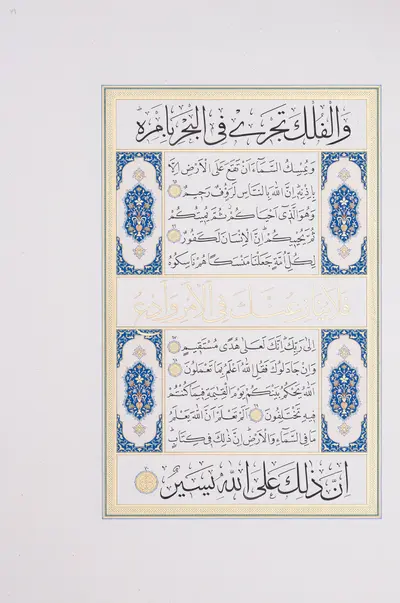 وَالْفُلْكَ تَجْرِي فِي الْبَحْرِ بِاَمْرِهِ
وَيُمْسِكُ السَّمَاءَ اَنْ تَقَعَ عَلَى الْاَرْضِ اِلَّا
بِاِذْنِهِ اِنَّ اللّٰهَ بِالنَّاسِ لَرَؤُفٌ رَحِيمٌ
وَهُوَ الَّذِي اَحْيَاكُمْ ثُمَّ يُمِيتُكُمْ
ثُمَّ يُحْيِيكُمْ اِنَّ الْاِنْسَانَ لَكَفُورٌ
لِكُلِّ اُمَّةٍ جَعَلْنَا مَنْسَكًا هُمْ نَاسِكُوهُ
فَلَا يُنَازِعُنَّكَ فِي الْاَمْرِ وَادْعُ
اِلٰى رَبِّكَ اِنَّكَ لَعَلٰى هُدًى مُسْتَقِيمٍ
وَاِنْ جَادَلُوكَ فَقُلِ اللّٰهُ اَعْلَمُ بِمَا تَعْمَلُونَ
اَللّٰهُ يَحْكُمُ بَيْنَكُمْ يَوْمَ الْقِيٰمَةِ فِيمَا كُنْتُمْ
فِيهِ تَخْتَلِفُونَ اَلَمْ تَعْلَمْ اَنَّ اللّٰهَ يَعْلَمُ
مَا فِي السَّمَاءِ وَالْاَرْضِ اِنَّ ذٰلِكَ فِي كِتَابٍ
اِنَّ ذٰلِكَ عَلَى اللّٰهِ يَسِيرٌ